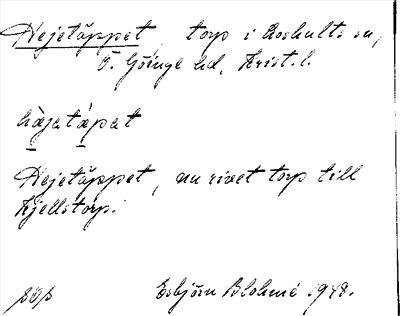 Hejetäppet, torp i Loshults sn,
Ö. Göinge hd, Krist. l.
hàjetápət
Hejetäppet, nu rivet torp till
Kjellstorp.
Esbjörn Blohmé 1948.